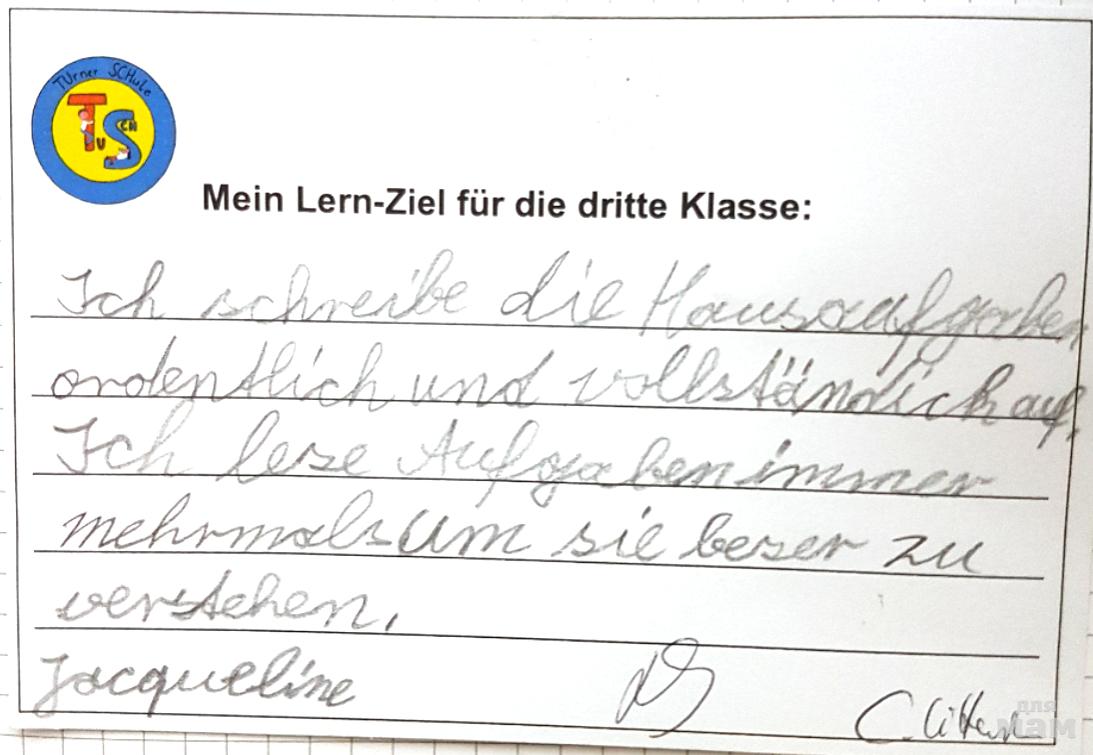 TUrner SCHule
TuSCH
Mein Lern-Ziel für die dritte Klasse:
Ich schreibe die Hausaufgaben
ordentlich und vollständich auf.
Ich lese Aufgaben immer
mehrmals um sie beser zu
verstehen.
Jacqueline
для
мам